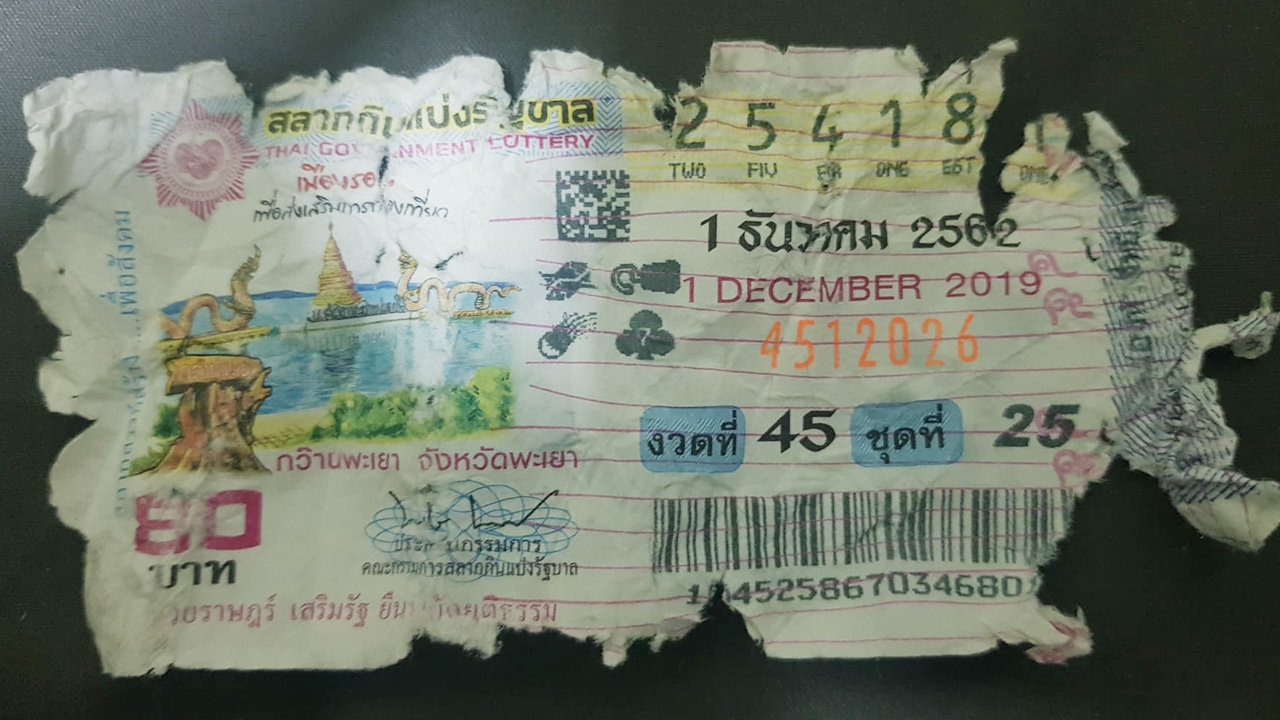 สลากกินแบ่งรัฐบาล
THAI GOVERNMENT LOTTERY
เมืองรอง
เพื่อส่งเสริมการท่องเที่ยว
2 5 4 1 8 1
TWO FIV FOR ONE EGT ONE
1 ธันวาคม 2562
1 DECEMBER 2019
4512026
งวดที่ 45 ชุดที่ 25
กว๊านพะเยา จังหวัดพะเยา
80
บาท
ประธานกรรมการ
คณะกรรมการสลากกินแบ่งรัฐบาล
วยราษฎร์ เสริมรัฐ ยืนหยัดยุติธรรม
เพื่อสังคม